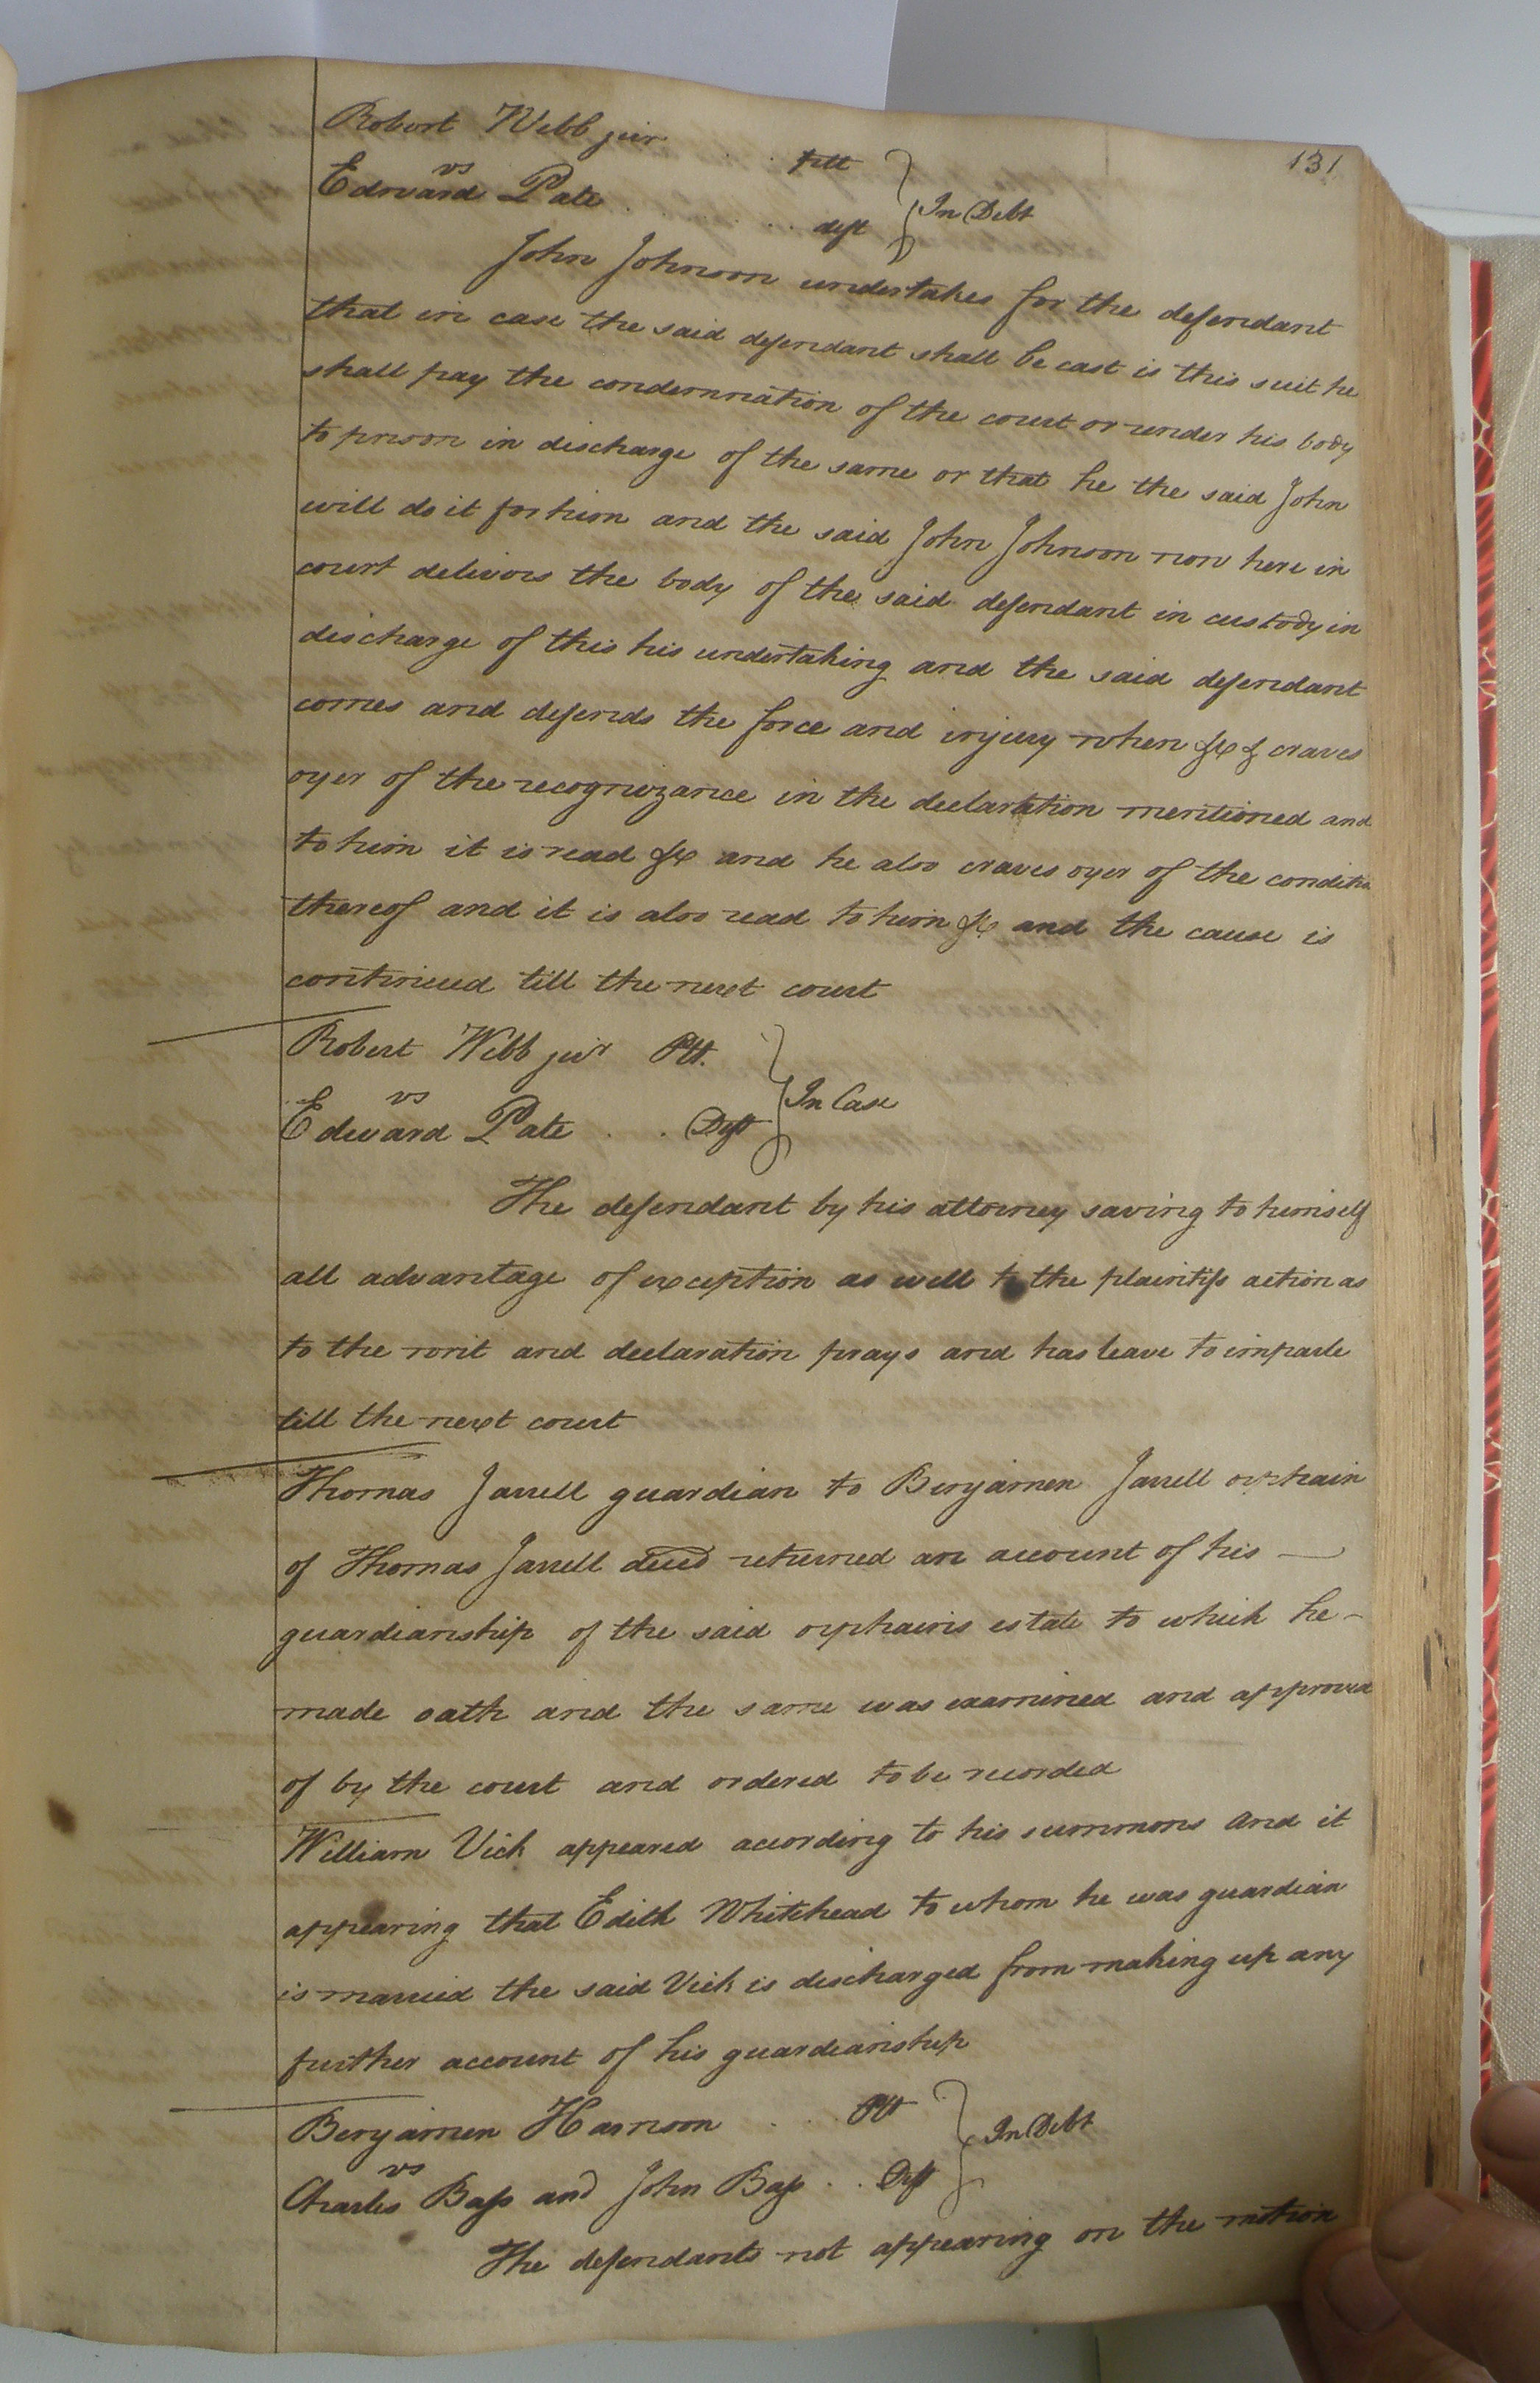 131
Robert Webb junr . . . Plt
vs
Edward Pate . . . . . deft } In Debt
John Johnson undertakes for the defendant
that in case the said defendant shall be cast is this suit he
shall pay the condemnation of the court or render his body
to prison in discharge of the same or that he the said John
will do it for him and the said John Johnson now here in
court delivers the body of the said defendant in custody in
discharge of this his undertaking and the said defendant
comes and defends the force and injury when &c & craves
oyer of the recognizance in the declaration mentioned and
to him it is read &c and he also craves oyer of the condition
thereof and it is also read to him &c and the cause is
continued till the next court
Robert Webb junr Plt.
vs
Edward Pate . . Deft } In Case
The defendant by his attorney saving to himself
all advantage of exception as well to the plaintifs action as
to the writ and declaration prays and has leave to imparle
till the next court
Thomas Jarrell guardian to Benjamen Jarrell orphain
of Thomas Jarrell deced returned an account of his —
guardianship of the said orphains estate to which he -
made oath and the same was examined and approved
of by the court and ordered to be recorded
William Vick appeared according to his summons and it
appearing that Edith Whitehead to whom he was guardian
is married the said Vick is discharged from making up any
further account of his guardianship
Benjamen Harrison . . . Plt
vs
Charles Bass and John Bass . . Deft } In Debt
The defendants not appearing on the motion